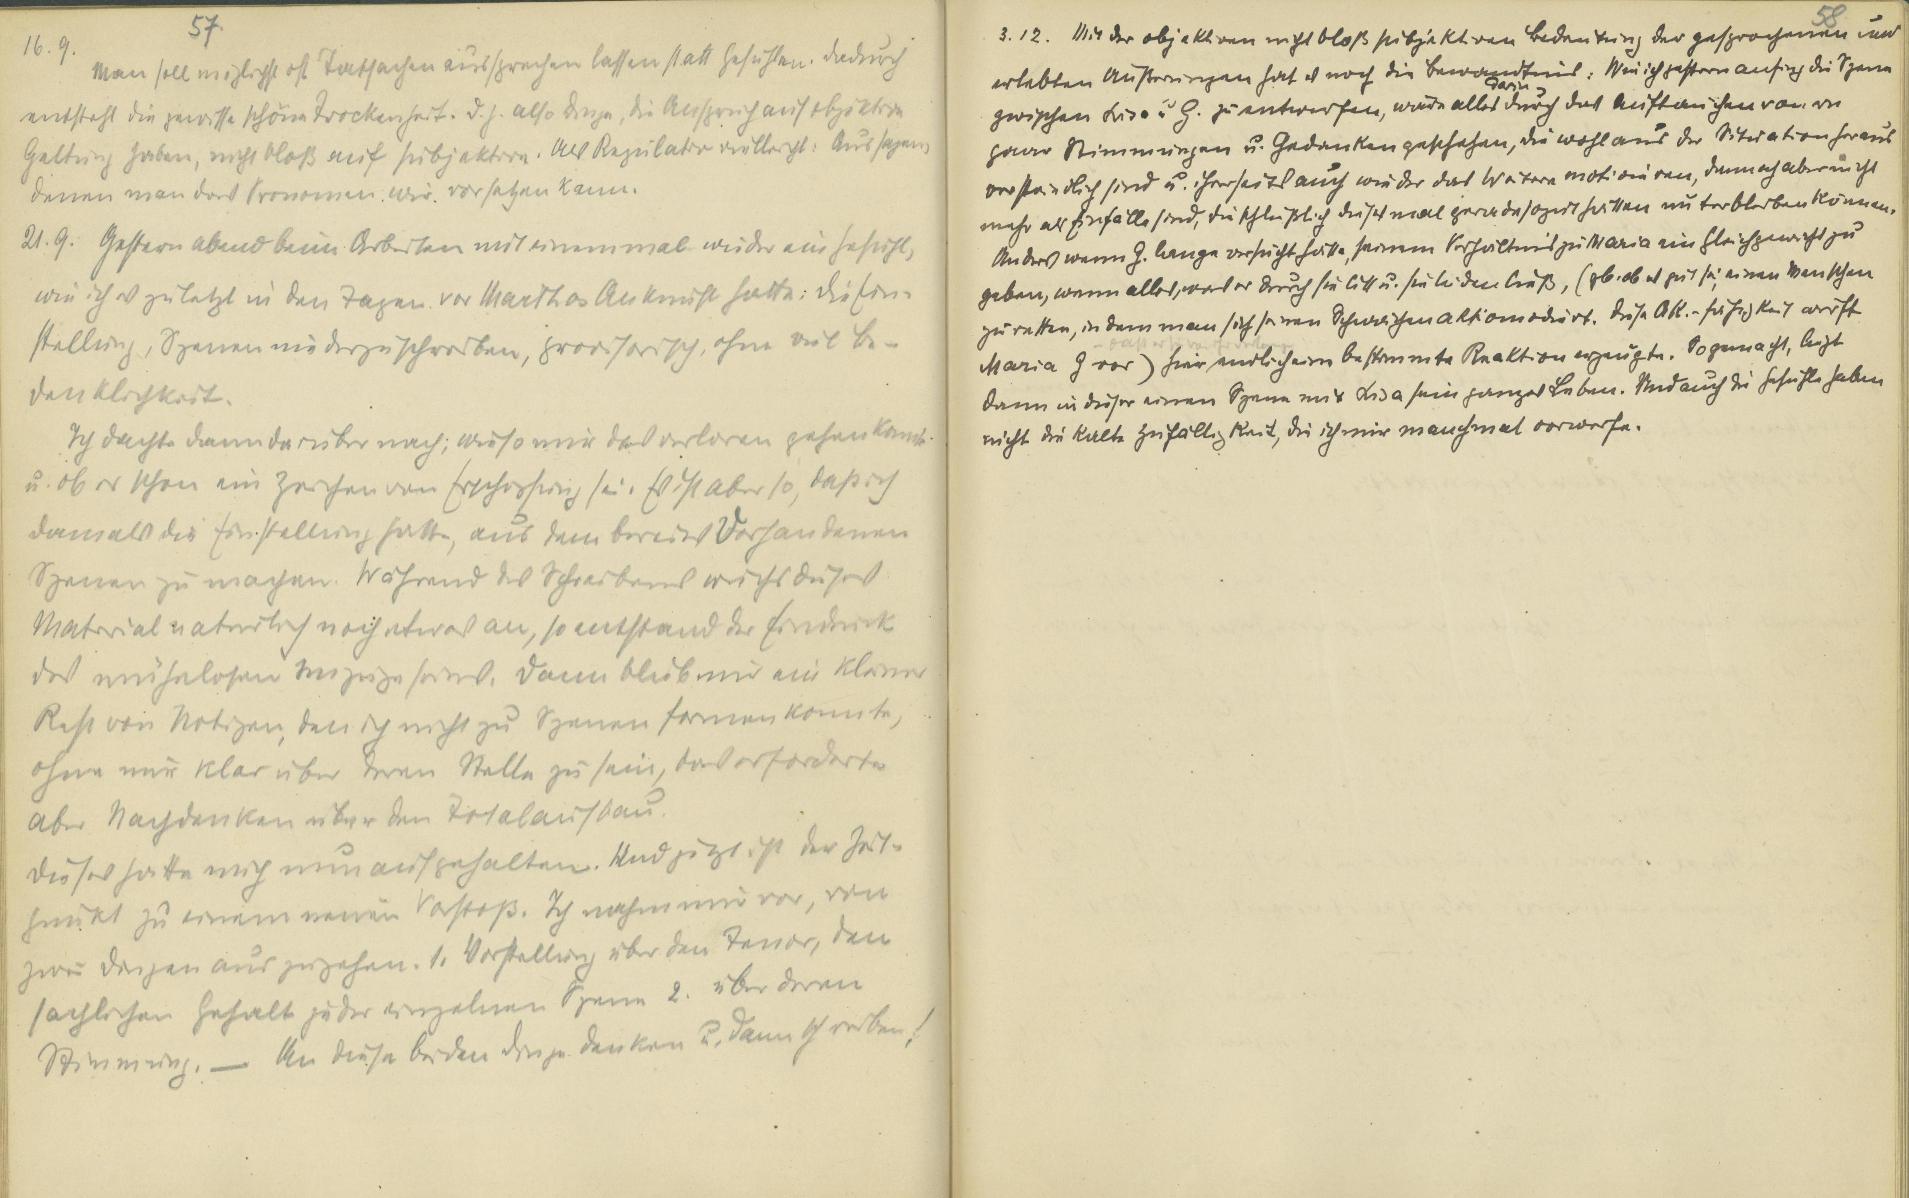 57
16. 9.
Man soll möglichst oft Tatsachen aussprechen lassen statt Gefühlen. Dadurch
entsteht die gewisse schöne Trockenheit. D. h. also Dinge, die Anspruch auf objektive
Geltung haben, nicht bloß auf subjektive. Als Regulativ vielleicht: Aussagen
denen man das Pronomen wir vorsetzen kann.
21. 9. Gestern abend beim Arbeiten mit einemmal wieder ein Gefühl,
wie ich es zuletzt in den Tagen vor Marthas Ankunft hatte: die Ein-
stellung, Szenen niederzuschreiben, provisorisch, ohne viel Be-
denklichkeit.
Ich dachte dann darüber nach, wieso mir das verloren gehen konnte
u. ob es schon ein Zeichen von Erschöpfung sei. Es ist aber so, daß ich
damals die Einstellung hatte, aus dem bereits Vorhandenen
Szenen zu machen. Während des Schreibens wuchs dieses
Material natürlich noch etwas an, so entstand der Eindruck
des mühelosen Inszugeseins. Dann blieb mir ein kleiner
Rest von Notizen, den ich nicht zu Szenen formen konnte,
ohne mir klar über deren Stelle zu sein, das erforderte
aber Nachdenken über den Totalaufbau.
Dieses hatte mich nun aufgehalten. Und jetzt ist der Zeit-
punkt zu einem neuen Vorstoß. Ich nahm mir vor, von
zwei Dingen auszugehen. 1. Vorstellung über den Tenor, den
sachlichen Gehalt jeder einzelnen Szene 2. über deren
Stimmung. — An diese beiden Dinge denken u. dann schreiben!
58
3. 12. Mit der objektiven nicht bloß subjektiven Bedeutung der gesprochenen und
erlebten Äußerungen hat es noch die Bewandtnis: Wie ich gestern anfing die Szene
zwischen Lisa u G. zu entwerfen, wäre alles darin durch das Auftauchen von ein
paar Stimmungen u. Gedanken geschehen, die wohl aus der Situation heraus
verständlich sind u. ihrerseits auch wieder das Weitere motivieren, dennoch aber nicht
mehr als Einfälle sind, die schließlich diesmal geradesogut hätten unterbleiben können.
Anders wenn G. lange versucht hätte, seinem Verhältnis zu Maria ein Gleichgewicht zu
geben, wenn alles, was er durch sie litt u. sie leiden ließ, (zb. ob es gut sei, einen Menschen
zu retten, indem man sich seinen Schwächen akkomodiert. Diese Akk.-fähigkeit wirft
Maria G vor) hier endlich eine bestimmte Reaktion erzeugte. So gemacht, liegt
dann in dieser einen Szene mit Lisa sein ganzes Leben. Und auch die Gefühle haben
nicht die kalte Zufälligkeit, die ich mir manchmal vorwerfe.